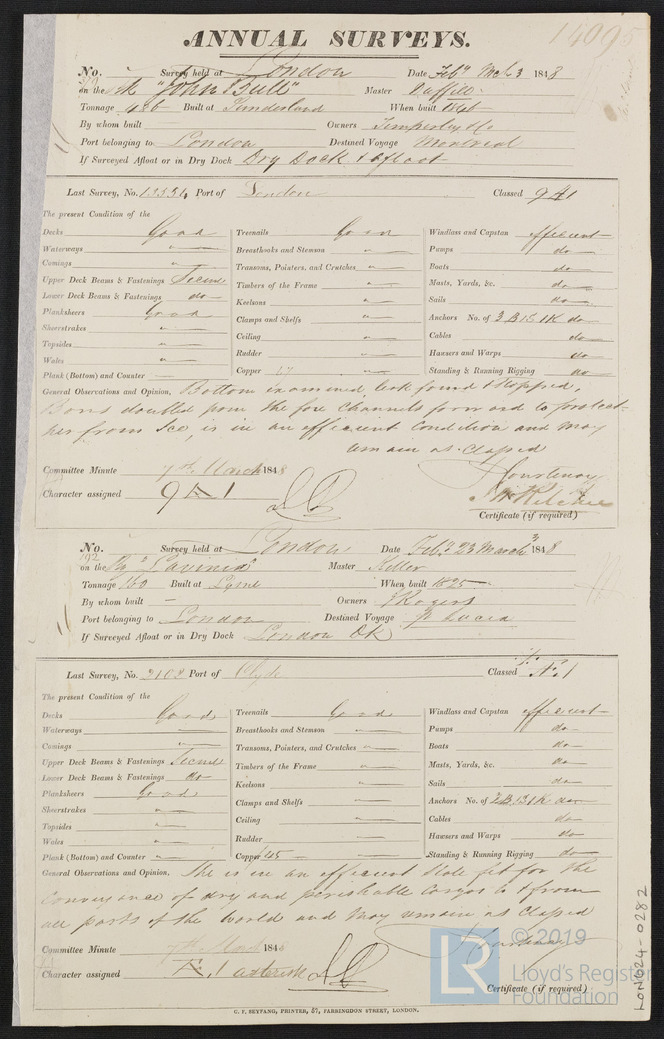 ANNUAL SURVEYS.
14095
No. Survey held at London Date Feby Mch 3 1848
on the "John Bull" Master
Tonnage 486 Built at Sunderland When built 1846
By whom built Owners Temperley & Co
Port belonging to London Destined Voyage Montreal
If Surveyed Afloat or in Dry Dock Dry Dock & afloat
Last Survey, No. 13354 Port of London Classed 9 A1
The present Condition of the
Decks Good Treenails Good Windlass and Capstan efficient
Waterways " Breasthooks and Stemson " Pumps do
Comings " Transoms, Pointers, and Crutches " Boats do
Upper Deck Beams & Fastenings Secure Timbers of the Frame " Masts, Yards, &c. do
Lower Deck Beams & Fastenings do Keelsons " Sails do
Planksheers Good Clamps and Shelfs " Anchors No. of 3 B 1 S 1 K do
Sheerstrakes " Ceiling " Cables do
Topsides " Rudder " Hawsers and Warps do
Wales " Copper 47 " Standing & Running Rigging do
Plank (Bottom) and Counter "
General Observations and Opinion, Bottom examined, leak found & stopped,
Bows doubled from the fore Channels forward to protect
her from Ice, is in an efficient Condition and may
remain as Classed
Committee Minute 7th March 1848
Character assigned 9 A 1
Certificate (if required)
No. Survey held at London Date Feby 23 March 3 1848
192 on the Bg "Lavinia" Master Keller
Tonnage 160 Built at Lyme When built 1825
By whom built — Owners J Rogers
Port belonging to London Destined Voyage St Lucia
If Surveyed Afloat or in Dry Dock London Dk
Last Survey, No. 2102 Port of Clyde Classed Æ 1
The present Condition of the
Decks Good Treenails Good Windlass and Capstan efficient
Waterways " Breasthooks and Stemson " Pumps do
Comings " Transoms, Pointers, and Crutches " Boats do
Upper Deck Beams & Fastenings Secure Timbers of the Frame " Masts, Yards, &c. do
Lower Deck Beams & Fastenings do Keelsons " Sails do
Planksheers Good Clamps and Shelfs " Anchors No. of 2 B 1 S 1 K do
Sheerstrakes " Ceiling " Cables do
Topsides " Rudder " Hawsers and Warps do
Wales " Copper /45 " Standing & Running Rigging do
Plank (Bottom) and Counter "
General Observations and Opinion, She is in an efficient State fit for the
Conveyance of dry and perishable Cargos to & from
all parts of the World and May remain as Classed
Committee Minute 7th March 1848
Character assigned Æ 1 asterisk
Certificate (if required)
C. F. SEYFANG, PRINTER, 57, FARRINGDON STREET, LONDON.
LON624-0282
LR
© 2019
Lloyd's Register
Foundation